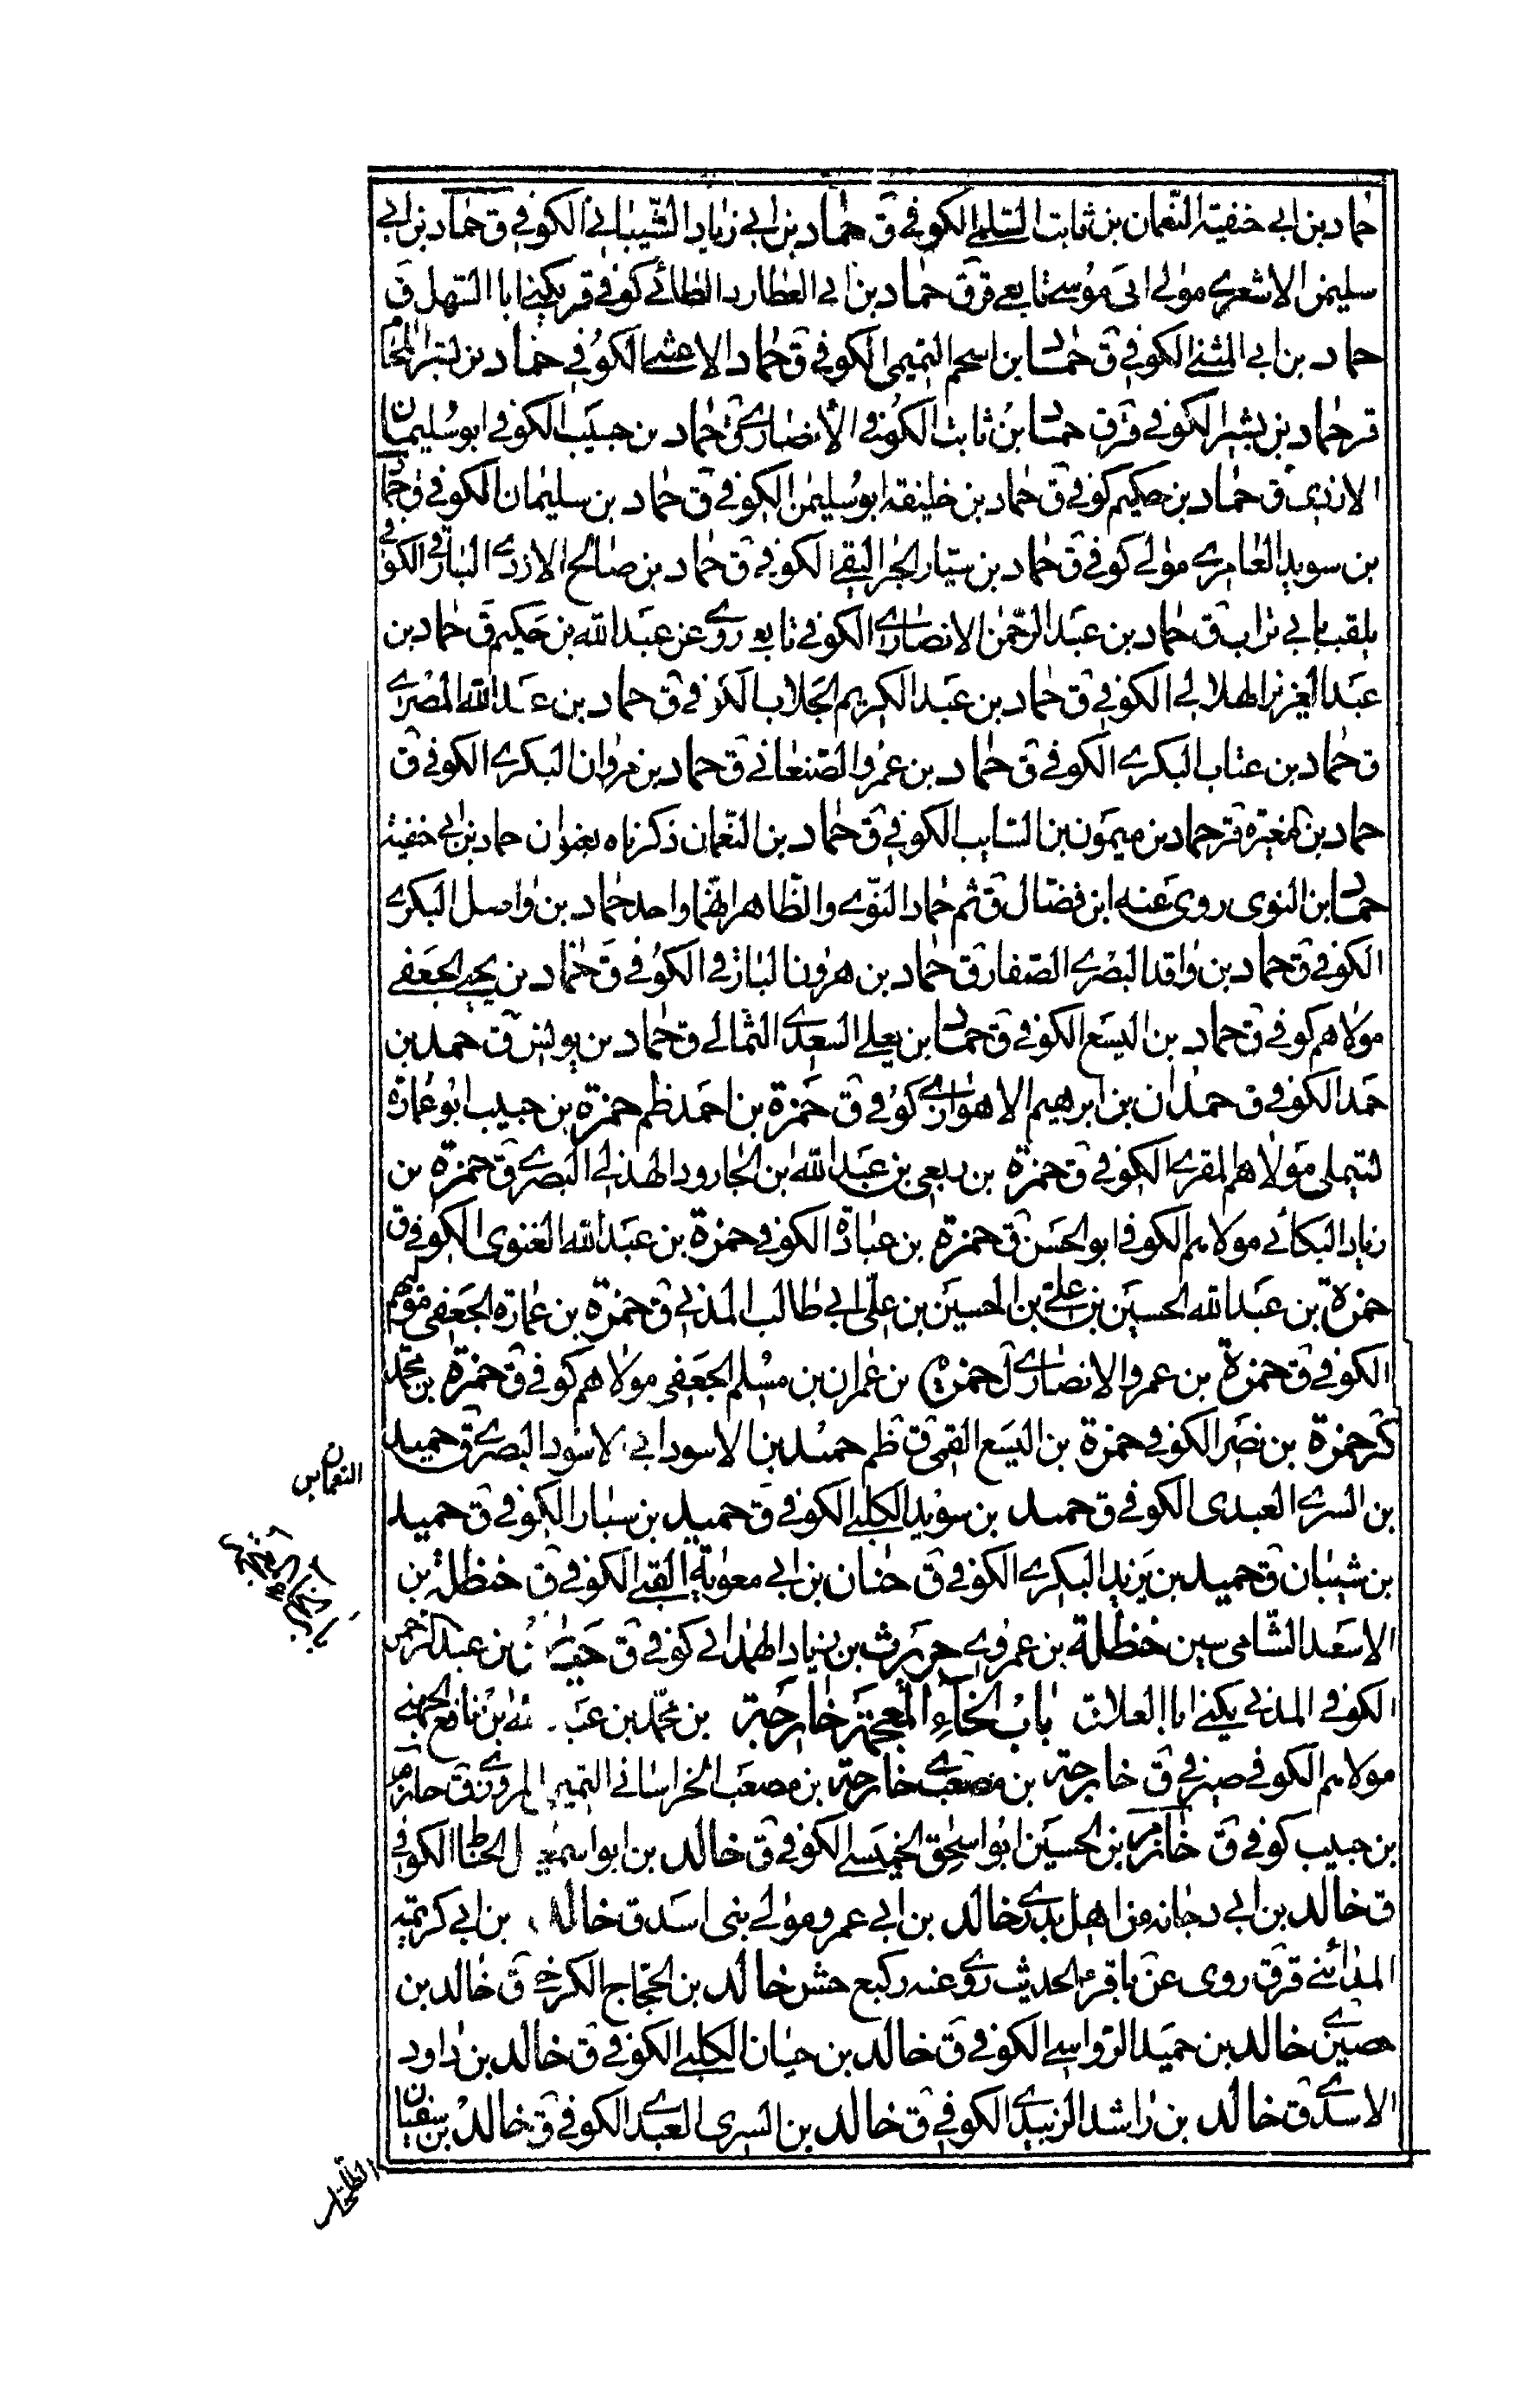 حماد بن ابي حنفية النعمان بن ثابت السلمى الكوفي ق حماد بن ابي زياد الشيباني الكوفي ق حماد بن ابي
سليمن الاشعرى مولى ابى موسى تابعى قر ق حماد بن ابى العطارد الطائى كوفي قر يكنى ابا السهل ق
حماد بن ابي المثنى الكوفي ق حماد بن اسحم التميمى الكوفي ق حماد الاعشى الكوفي حماد بن بشر اللحام
قر حماد بن بشير الكوفي قر ق حماد بن ثابت الكوفي الأنصارى ق حماد بن حبيب الكوفي ابو سليمان
الازدى ق حماد بن حكيم كوفي ق حماد بن خليفة ابو سليمن الكوفي ق حماد بن سليمان الكوفي ق حماد
بن سويد العامرى مولى كوفي ق حماد بن سيار الكوفي ق حماد بن صالح الازدى البارقى الكوفي
يلقب بابي تراب ق حماد بن عبد الرحمن الانصارى الكوفي تابعى روى عن عبد الله بن حكيم ق حماد بن
عبد العزيز الهلالى الكوفي ق حماد بن عبد الكريم الجلاب الكوفي ق حماد بن عبد الله المصرى
ق حماد بن عتاب البكرى الكوفي ق حماد بن عمرو الصنعانى ق حماد بن مروان البكرى الكوفي ق
حماد بن المغيرة قر حماد بن ميمون بن السايب الكوفي ق حماد بن النعمان ذكرناه بعنوان حماد بن ابي حنفية
حماد بن النوى روى عنه ابن فضال ق ثم حماد النوى والظاهر انهما واحد حماد بن واصل البكرى
الكوفي ق حماد بن واقد البصرى الصفار ق حماد بن هرون البارقى الكوفي ق حماد بن يحيى الجعفى
مولاهم كوفي ق حماد بن اليسع الكوفي ق حماد بن يعلى السعدى الثمالى ق حماد بن يونس ق حمد بن
حمد الكوفي ق حمدان بن ابرهيم الاهوازى كوفي ق حمزة بن احمد ظم حمزة بن حبيب ابو عمارة
لتيملى مولاهم المقرى الكوفي ق حمزة بن ربعى بن عبد الله ابن الجارود الهذلى البصرى ق حمزة بن
زياد البكائى مولاهم الكوفي ابو الحسن ق حمزة بن عبادة الكوفي حمزة بن عبد الله الغنوى الكوفي ق
حمزة بن عبد الله الحسين بن على بن الحسين بن على ابي طالب المدنى ق حمزة بن عمارة الجعفى مولهم
الكوفي ق حمزة بن عمرو الانصارى ل حمزة بن عمران بن مسلم الجعفى مولاهم كوفي ق حمزة بن محمد
كر حمزة بن نصر الكوفي حمزة بن اليسع القمى ق ظم حميد بن الاسود ابي الاسود البصرى ق حميد
بن السرى العبدى الكوفي ق حميد بن سويد الكلبى الكوفي ق حميد بن سيار الكوفي ق حميد
بن شيبان ق حميد بن يزيد البكرى الكوفي ق حنان بن ابي معوية القبى الكوفي ق حنظلة بن
الاسعد الشامى سين حنظلة بن عمرو ى حويرث بن زياد الهمدانى كوفي ق بن عبد الرحمن
الكوفي المدنى يكنى ابا العلاء ق باب الخاء المعجمة خارجة بن محمد بن عبد الله بن نافع الجهنى
مولاهم الكوفي صيرفى ق خارجة بن مصعب ى خارجة بن مصعب الخراسانى التميمى المروزى ق خازم
بن حبيب كوفي ق خازم بن الحسين ابو اسحق الخميسى الكوفي ق خالد بن ابو اسمعيل الحناط الكوفي
ق خالد بن ابي دجانة من اهل بدر ى خالد بن ابي عمرو مولى بنى اسد ق خالد بن ابي كريمة
المدائنى قر ق روى عن باقر الحديث روى عنه وكيع خالد بن الحجاج الكرخى ق خالد بن
حصين ى خالد بن حميد الرواسى الكوفي ق خالد بن حيان الكلبى الكوفي ق خالد بن داود
الاسدى ق خالد بن راشد الزبيدى الكوفي ق خالد بن السرى العبدى الكوفي ق خالد بن سفيان
النعمان س
الطحان